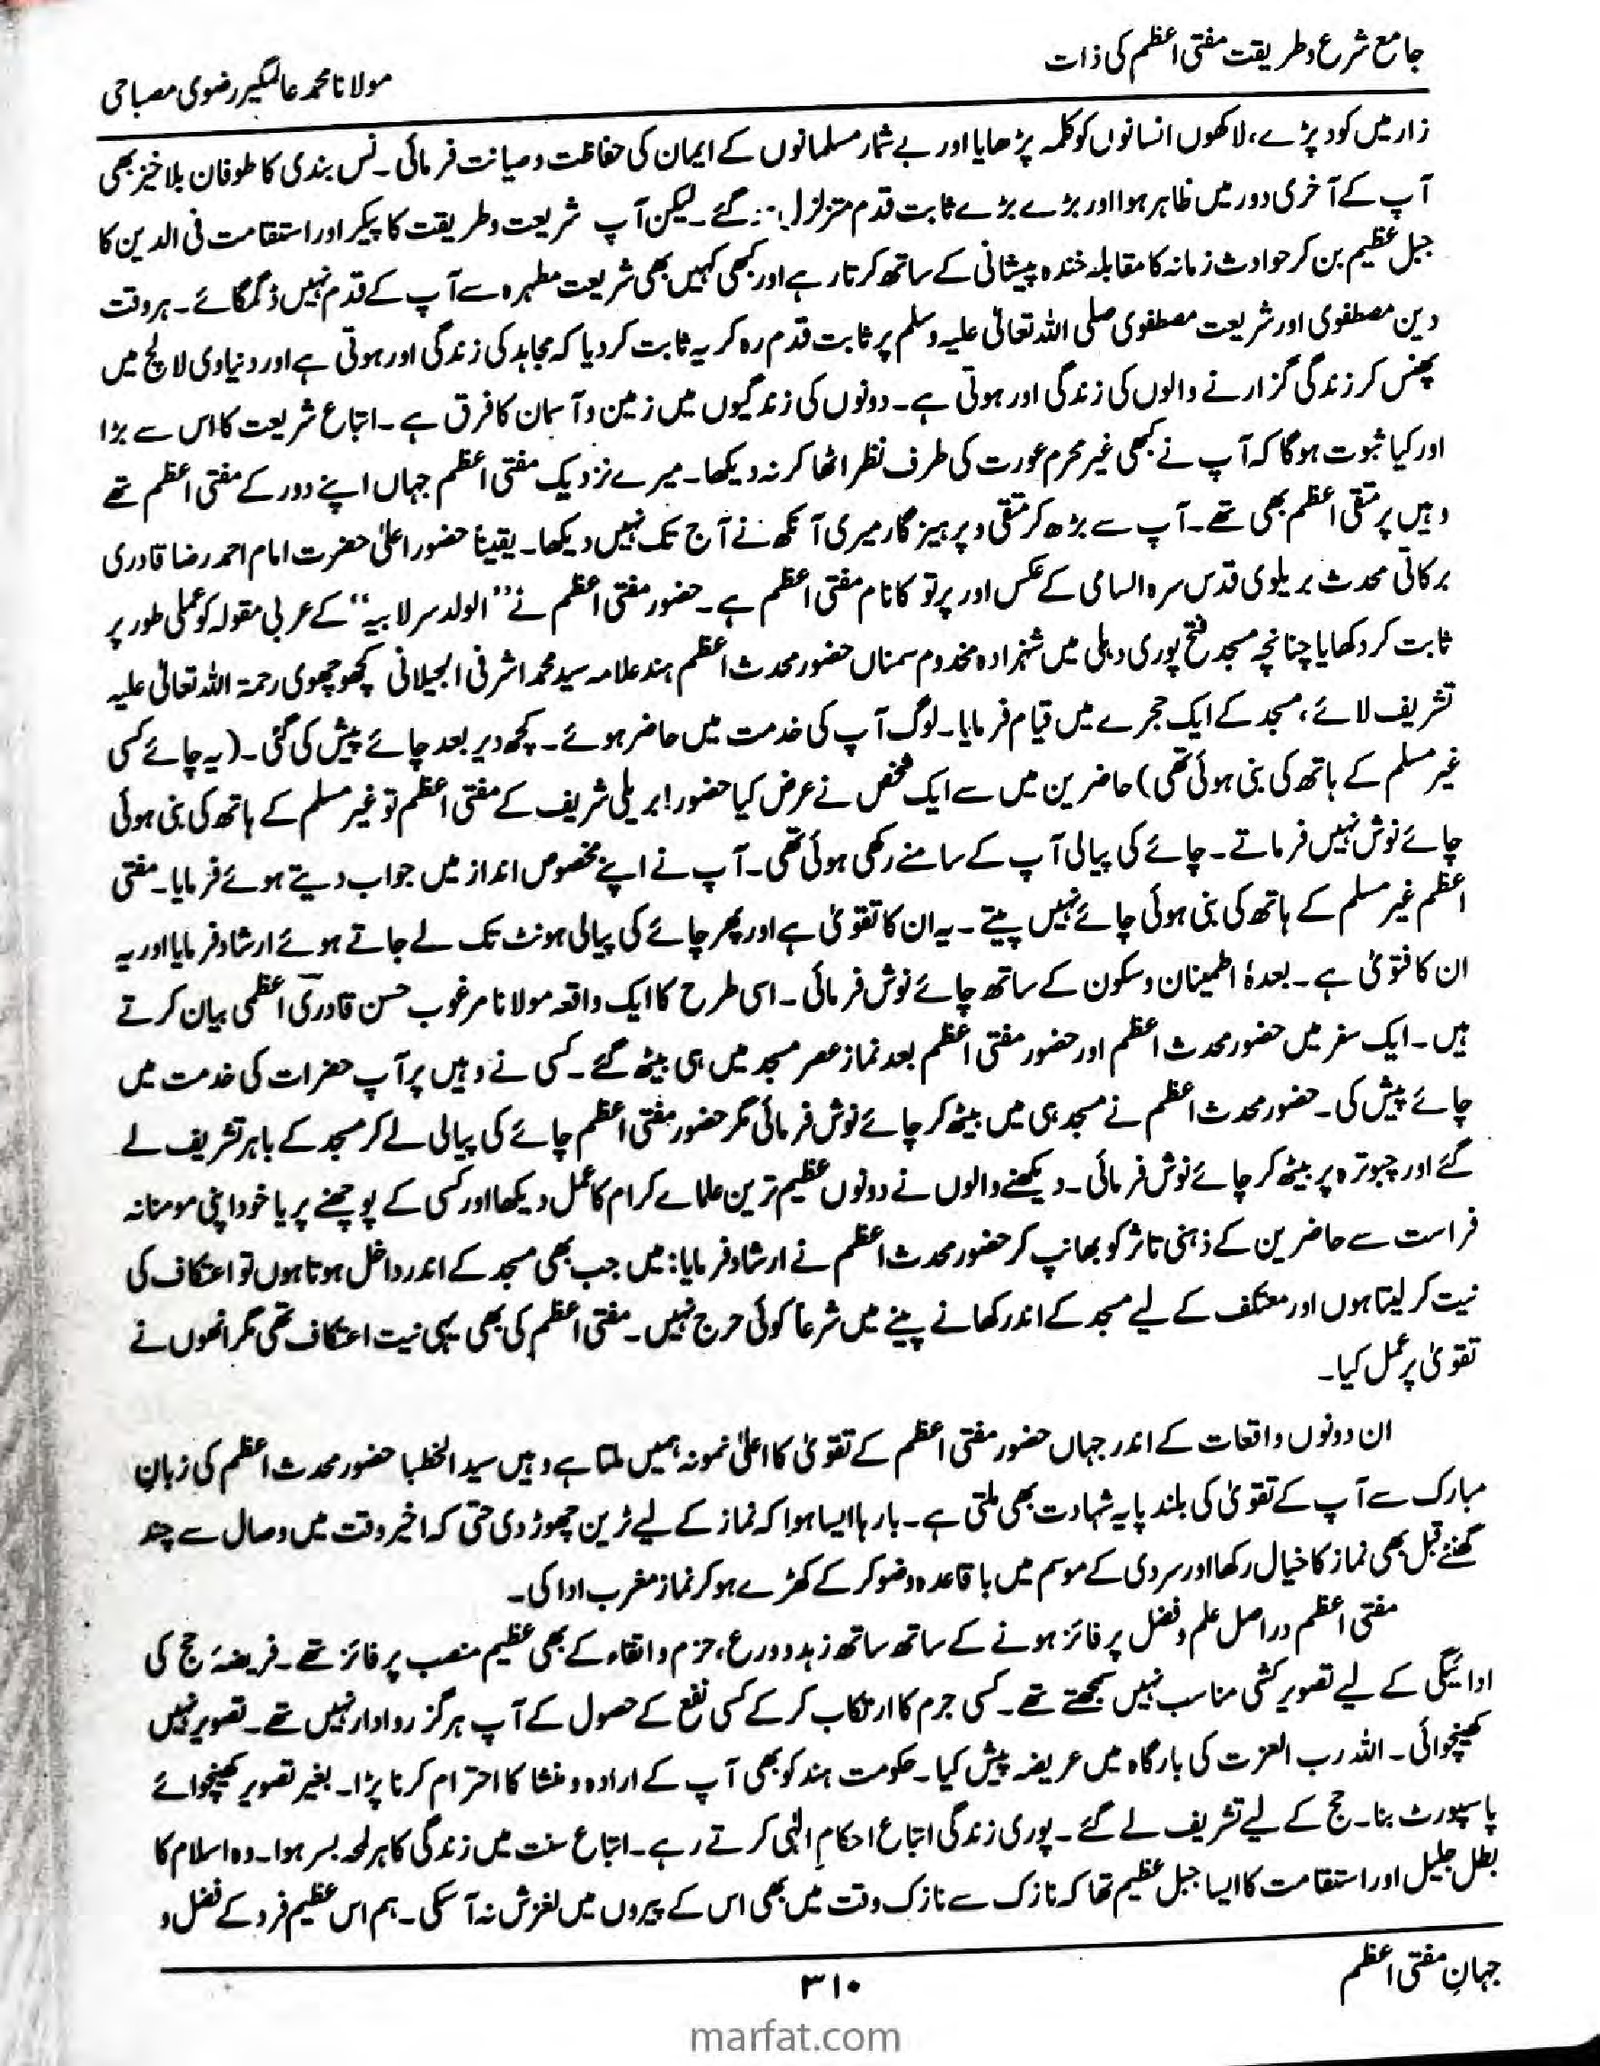 جامع شرع و طریقت مفتی اعظم کی ذات
مولانا محمد عالمگیر رضوی مصباحی
زار میں کود پڑے، لاکھوں انسانوں کو کلمہ پڑھایا اور بے شمار مسلمانوں کے ایمان کی حفاظت و صیانت فرمائی۔ نس بندی کا طوفان بلا خیز بھی
آپ کے آخری دور میں ظاہر ہوا اور بڑے بڑے ثابت قدم متزلزل ہو گئے۔ لیکن آپ شریعت و طریقت کا پیکر اور استقامت فی الدین کا
جبل عظیم بن کر حوادث زمانہ کا مقابلہ خندہ پیشانی کے ساتھ کرتا رہے اور کبھی کہیں بھی شریعت مطہرہ سے آپ کے قدم نہیں ڈگمگائے۔ ہر وقت
دین مصطفوی اور شریعت مصطفوی صلی اللہ تعالیٰ علیہ وسلم پر ثابت قدم رہ کر یہ ثابت کر دیا کہ مجاہد کی زندگی اور ہوتی ہے اور دنیاوی لالچ میں
پھنس کر زندگی گزارنے والوں کی زندگی اور ہوتی ہے۔ دونوں کی زندگیوں میں زمین و آسمان کا فرق ہے۔ اتباع شریعت کا اس سے بڑا
اور کیا ثبوت ہوگا کہ آپ نے کبھی غیر محرم عورت کی طرف نظر اٹھا کر نہ دیکھا۔ میرے نزدیک مفتی اعظم جہاں اپنے دور کے مفتی اعظم تھے
وہیں پر متقی اعظم بھی تھے۔ آپ سے بڑھ کر متقی و پرہیز گار میری آنکھ نے آج تک نہیں دیکھا۔ یقیناً حضور اعلیٰ حضرت امام احمد رضا قادری
برکاتی محدث بریلوی قدس سرہ السامی کے عکس اور پرتو کا نام مفتی اعظم ہے۔ حضور مفتی اعظم نے ’’الولد سر لابیہ‘‘ کے عربی مقولہ کو عملی طور پر
ثابت کر دکھایا چنانچہ مسجد فتح پوری دہلی میں شہزادہ مخدوم سمناں حضور محدث اعظم ہند علامہ سید محمد اشرفی الجیلانی کچھوچھوی رحمۃ اللہ تعالیٰ علیہ
تشریف لائے، مسجد کے ایک حجرے میں قیام فرمایا۔ لوگ آپ کی خدمت میں حاضر ہوئے۔ کچھ دیر بعد چائے پیش کی گئی۔ (یہ چائے کسی
غیر مسلم کے ہاتھ کی بنی ہوئی تھی) حاضرین میں سے ایک شخص نے عرض کیا حضور! بریلی شریف کے مفتی اعظم تو غیر مسلم کے ہاتھ کی بنی ہوئی
چائے نوش نہیں فرماتے۔ چائے کی پیالی آپ کے سامنے رکھی ہوئی تھی۔ آپ نے اپنے مخصوص انداز میں جواب دیتے ہوئے فرمایا۔ مفتی
اعظم غیر مسلم کے ہاتھ کی بنی ہوئی چائے نہیں پیتے۔ یہ ان کا تقویٰ ہے اور پھر چائے کی پیالی ہونٹ تک لے جاتے ہوئے ارشاد فرمایا اور یہ
ان کا فتویٰ ہے۔ بعدہٗ اطمینان و سکون کے ساتھ چائے نوش فرمائی۔ اسی طرح کا ایک واقعہ مولانا مرغوب حسن قادری اعظمی بیان کرتے
ہیں۔ ایک سفر میں حضور محدث اعظم اور حضور مفتی اعظم بعد نماز عصر مسجد میں ہی بیٹھ گئے۔ کسی نے وہیں پر آپ حضرات کی خدمت میں
چائے پیش کی۔ حضور محدث اعظم نے مسجد ہی میں بیٹھ کر چائے نوش فرمائی مگر حضور مفتی اعظم چائے کی پیالی لے کر مسجد کے باہر تشریف لے
گئے اور چبوترہ پر بیٹھ کر چائے نوش فرمائی۔ دیکھنے والوں نے دونوں عظیم ترین علمائے کرام کا عمل دیکھا اور کسی کے پوچھنے پر یا خود اپنی مومنانہ
فراست سے حاضرین کے ذہنی تاثر کو بھانپ کر حضور محدث اعظم نے ارشاد فرمایا: میں جب بھی مسجد کے اندر داخل ہوتا ہوں تو اعتکاف کی
نیت کر لیتا ہوں اور معتکف کے لیے مسجد کے اندر کھانے پینے میں شرعاً کوئی حرج نہیں۔ مفتی اعظم کی بھی یہی نیت اعتکاف تھی مگر انھوں نے
تقویٰ پر عمل کیا۔
ان دونوں واقعات کے اندر جہاں حضور مفتی اعظم کے تقویٰ کا اعلیٰ نمونہ ہمیں ملتا ہے وہیں سید الخطبا حضور محدث اعظم کی زبانِ
مبارک سے آپ کے تقویٰ کی بلند پایہ شہادت بھی ملتی ہے۔ بارہا ایسا ہوا کہ نماز کے لیے ٹرین چھوڑ دی حتی کہ اخیر وقت میں وصال سے چند
گھنٹے قبل بھی نماز کا خیال رکھا اور سردی کے موسم میں باقاعدہ وضو کر کے کھڑے ہو کر نماز مغرب ادا کی۔
مفتی اعظم در اصل علم و فضل پر فائز ہونے کے ساتھ ساتھ زہد و ورع، حزم و اتقاء کے بھی عظیم منصب پر فائز تھے۔ فریضۂ حج کی
ادائیگی کے لیے تصویر کشی مناسب نہیں سمجھتے تھے۔ کسی جرم کا ارتکاب کر کے کسی نفع کے حصول کے آپ ہرگز روادار نہیں تھے۔ تصویر نہیں
کھینچوائی۔ اللہ رب العزت کی بارگاہ میں عریضہ پیش کیا۔ حکومت ہند کو بھی آپ کے ارادہ و منشا کا احترام کرنا پڑا۔ بغیر تصویر کھینچوائے
پاسپورٹ بنا۔ حج کے لیے تشریف لے گئے۔ پوری زندگی اتباع احکامِ الٰہی کرتے رہے۔ اتباع سنت میں زندگی کا ہر لمحہ بسر ہوا۔ وہ اسلام کا
بطل جلیل اور استقامت کا ایسا جبل عظیم تھا کہ نازک سے نازک وقت میں بھی اس کے پیروں میں لغزش نہ آ سکی۔ ہم اس عظیم فرد کے فضل و
جہانِ مفتی اعظم
۳۱۰
marfat.com